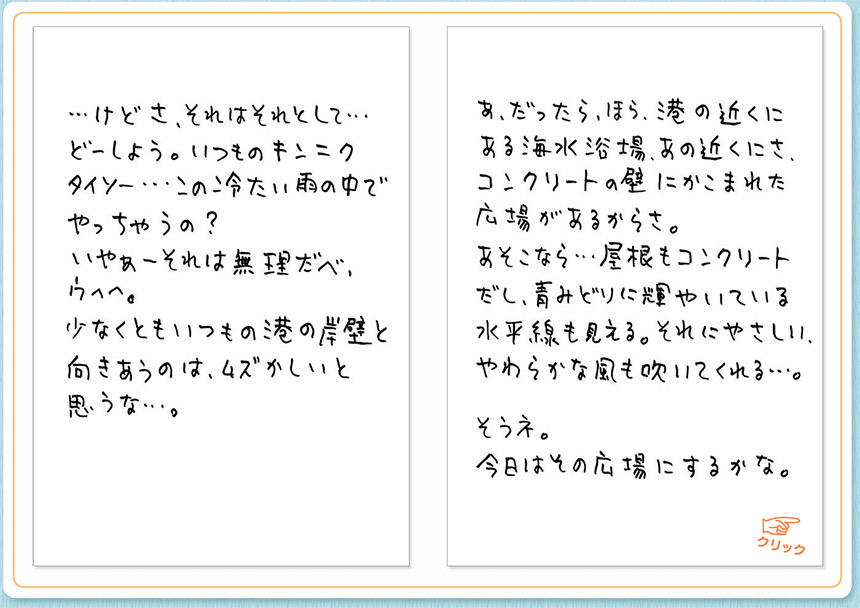 …けどさ、それはそれとして…
どーしよう。いつものキンニク
タイソー…この冷たい雨の中で
やっちゃうの？
いやぁーそれは無理だべ、
ウヘヘ。
少なくともいつもの港の岸壁と
向きあうのは、ムズかしいと
思うな…。
あ、だったら、ほら、港の近くに
ある海水浴場、あの近くにさ、
コンクリートの壁にかこまれた
広場があるからさ。
あそこなら…屋根もコンクリート
だし、青みどりに輝やいている
水平線も見える。それにやさしい、
やわらかな風も吹いてくれる…。
そうネ。
今日はその広場にするかな。
クリック